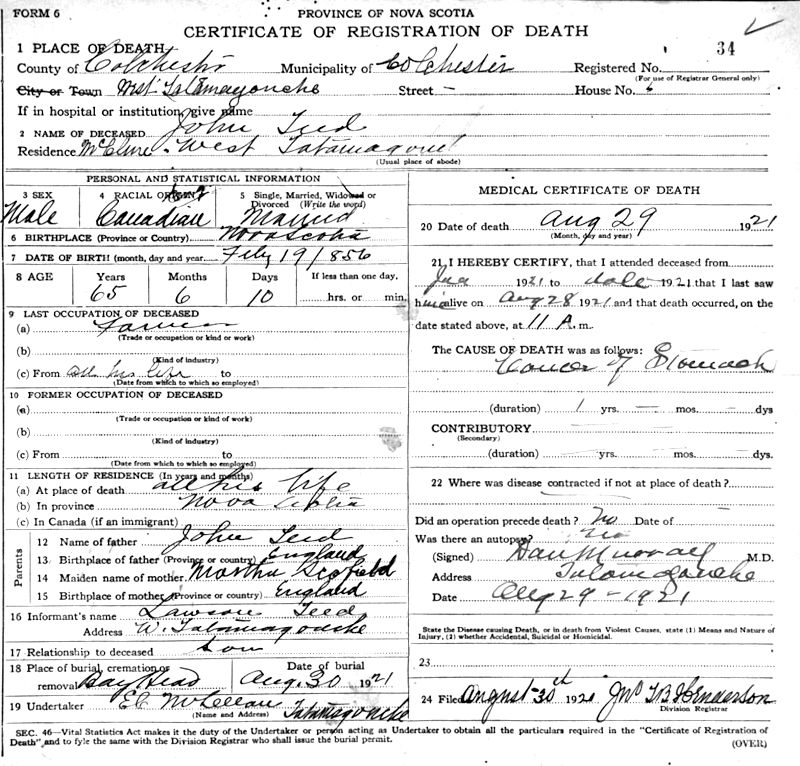 FORM 6
PROVINCE OF NOVA SCOTIA
CERTIFICATE OF REGISTRATION OF DEATH
34
1 PLACE OF DEATH
County of Colchester Municipality of Colchester Registered No.
(For use of Registrar General only)
City or Town West Tatamagouche Street – House No.
If in hospital or institution, give name
2 NAME OF DECEASED John Teed
Residence McClure West Tatamagouche
(Usual place of abode)
PERSONAL AND STATISTICAL INFORMATION
3 SEX
Male
4 RACIAL ORIGIN?
Canadian
5 Single, Married, Widowed or Divorced (Write the word)
Married
6 BIRTHPLACE (Province or Country) Nova Scotia
7 DATE OF BIRTH (month, day and year) Feby 19 1856
8 AGE Years Months Days If less than one day,
65 6 10 hrs. or min.
9 LAST OCCUPATION OF DECEASED
(a) Farmer
(Trade or occupation or kind or work)
(b)
(Kind of industry)
(c) From all his life to
(Date from which to which so employed)
10 FORMER OCCUPATION OF DECEASED
(a)
(Trade or occupation or kind of work)
(b)
(Kind of industry)
(c) From to
(Date from which to which so employed)
11 LENGTH OF RESIDENCE (In years and months)
(a) At place of death all his life
(b) In province Nova Scotia
(c) In Canada (if an immigrant)
Parents
12 Name of father John Teed
13 Birthplace of father (Province or country) England
14 Maiden name of mother Martha Scofield
15 Birthplace of mother (Province or country) England
16 Informant's name Lawson Teed
Address W. Tatamagouche
17 Relationship to deceased Son
18 Place of burial, cremation or removal Bay Head Date of burial Aug. 30 1921
19 Undertaker McLellan Tatamagouche
(Name and Address)
MEDICAL CERTIFICATE OF DEATH
20 Date of death Aug 29 1921
(Month, day and year)
21 I HEREBY CERTIFY, that I attended deceased from
1921 to date 1921 that I last saw
him alive on Aug 28 1921 and that death occurred, on the
date stated above, at 11 A. m.
The CAUSE OF DEATH was as follows:
Cancer of Stomach
(duration) 1 yrs. — mos. — dys
CONTRIBUTORY
(Secondary)
(duration) yrs. mos. dys.
22 Where was disease contracted if not at place of death?
Did an operation precede death? No Date of
Was there an autopsy? No
(Signed) Dan Murray M.D.
Address Tatamagouche
Date Aug 29 - 1921
State the Disease causing Death, or in death from Violent Causes, state (1) Means and Nature of Injury, (2) whether Accidental, Suicidal or Homicidal.
23
24 Filed August 30th 1921 Henderson
Division Registrar
SEC. 46—Vital Statistics Act makes it the duty of the Undertaker or person acting as Undertaker to obtain all the particulars required in the "Certificate of Registration of
Death" and to fyle the same with the Division Registrar who shall issue the burial permit. (OVER)